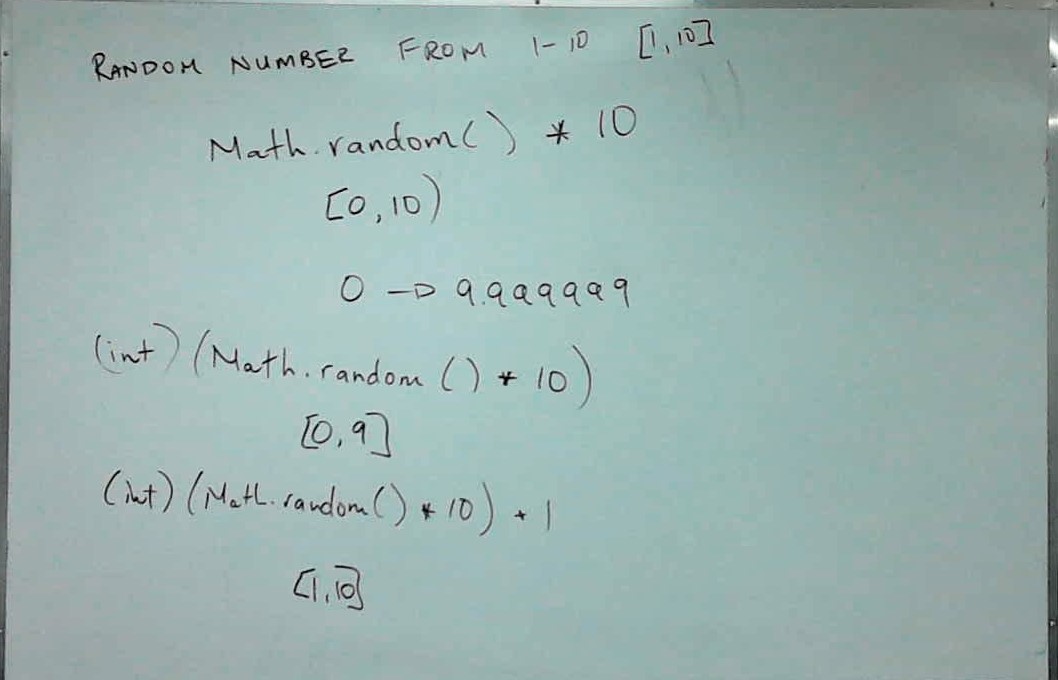 RANDOM NUMBER FROM 1-10 [1,10]
Math.random() * 10
[0,10)
0 → 9.999999
(int)(Math.random() * 10)
[0,9]
(int)(Math.random() * 10) + 1
[1,10]